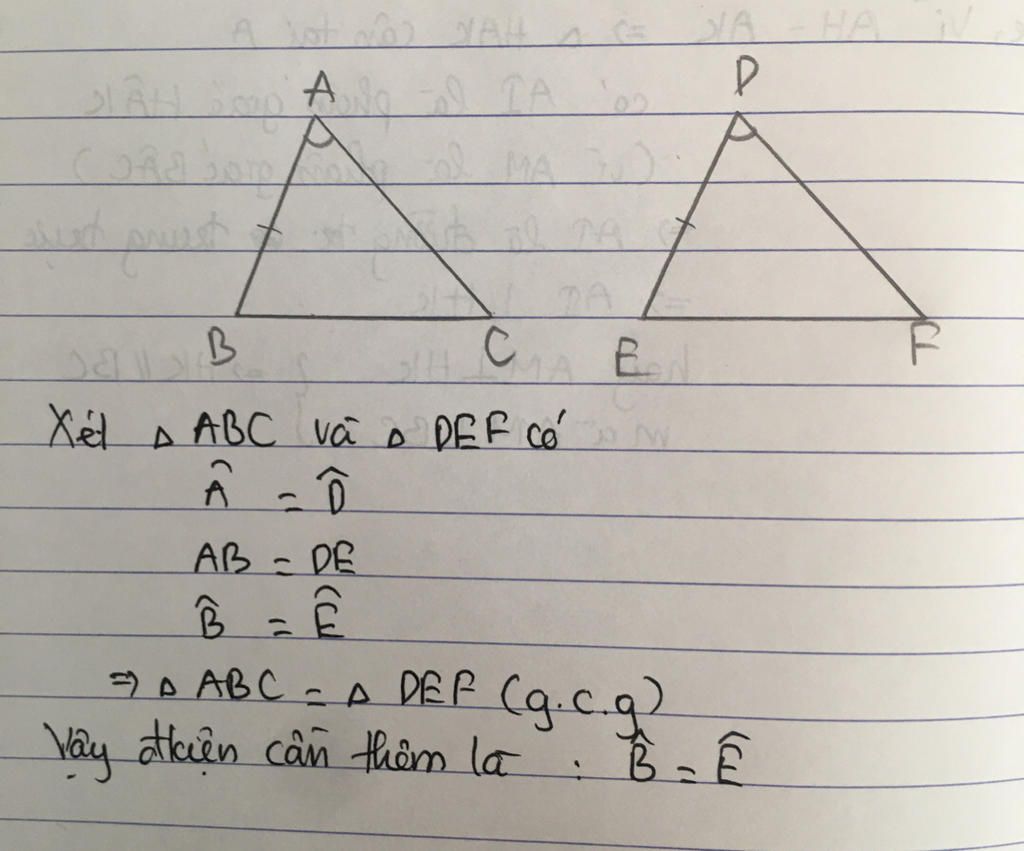 A
D
B
C
E
F
Xét △ ABC và △ DEF có
Â = D̂
AB = DE
B̂ = Ê
⇒ △ ABC = △ DEF (g.c.g)
Vậy đkiện cần thêm là : B̂ = Ê